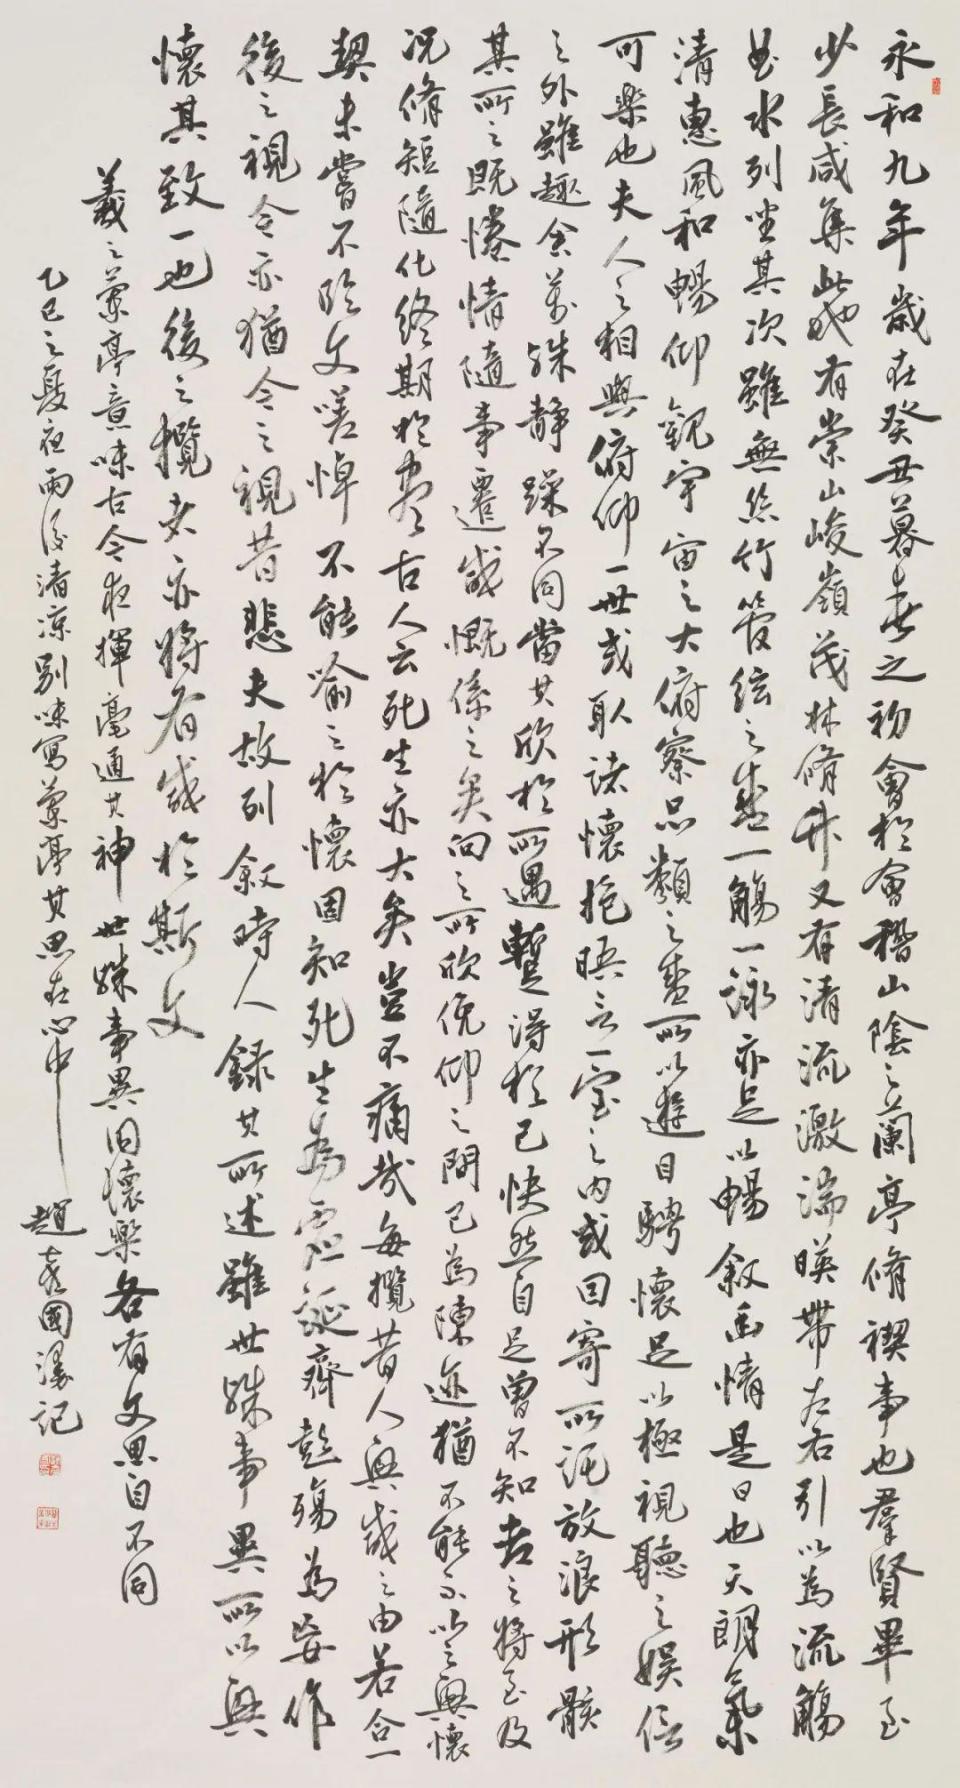 永和九年歲在癸丑暮春之初會於會稽山陰之蘭亭脩禊事也羣賢畢至
少長咸集此地有崇山峻嶺茂林脩竹又有清流激湍暎帶左右引以為流觴
曲水列坐其次雖無絲竹管絃之盛一觴一詠亦足以暢敘幽情是日也天朗氣
清惠風和暢仰觀宇宙之大俯察品類之盛所以遊目騁懷足以極視聽之娛信
可樂也夫人之相與俯仰一世或取諸懷抱晤言一室之內或因寄所託放浪形骸
之外雖趣舍萬殊靜躁不同當其欣於所遇暫得於己快然自足曾不知老之將至及
其所之既惓情隨事遷感慨係之矣向之所欣俛仰之間已為陳迹猶不能不以之興懷
況脩短隨化終期於盡古人云死生亦大矣豈不痛哉每攬昔人興感之由若合一
契未嘗不臨文嗟悼不能喻之於懷固知死生為虛誕齊彭殤為妄作
後之視今亦猶今之視昔悲夫故列敘時人錄其所述雖世殊事異所以興
懷其致一也後之攬者亦將有感於斯文
羲之蘭亭意味古今夜揮毫通其神世殊事異因懷樂各有文思自不同
乙巳之夏夜雨後清涼別味寫蘭亭其思在心中 趙國漫記